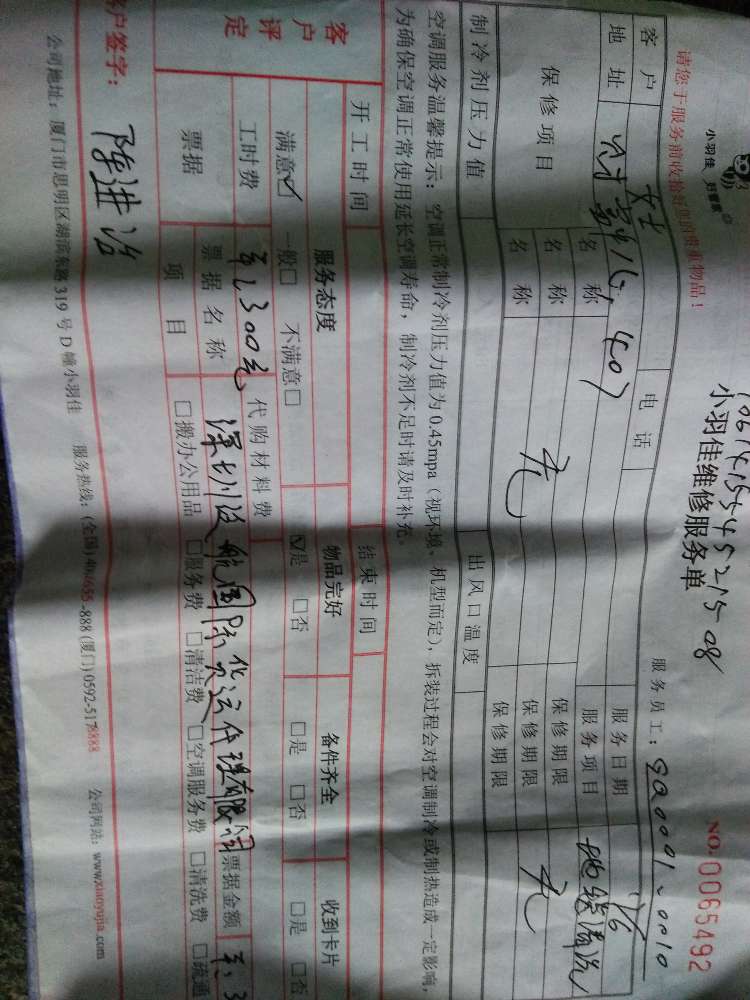 小羽佳 好管家
请您于服务前收拾好您的贵重物品！
小羽佳维修服务单
NO. 0065492
服务员工：
客户 女士 电话 服务日期 1/6
地址 407 服务项目 地毯清洗
保修项目 名称 保修期限
名称 无 保修期限 无
名称 保修期限
制冷剂压力值 出风口温度
空调服务温馨提示：空调正常制冷剂压力值为0.45mpa（视环境、机型而定），拆装过程会对空调制冷或制热造成一定影响，
为确保空调正常使用延长空调寿命，制冷剂不足时请及时补充。
开工时间 结束时间
客户评定 服务态度 物品完好 备件齐全 收到卡片
满意☑ 一般□ 不满意□ ☑是 □否 □是 □否 □是 □否
工时费 300元 代购材料费
票据 票据名称 深圳 航国际货运代理有限公司 票据金额
项目 □搬办公用品 □服务费 □清洁费 □空调服务费 □清洗费 □疏通
客户签字： 陈进治
公司地址：厦门市思明区湖滨东路319号D幢小羽佳 服务热线：(全国) 400655-888 (厦门) 0592-5178888 公司网站：www.xiaoyujia.com